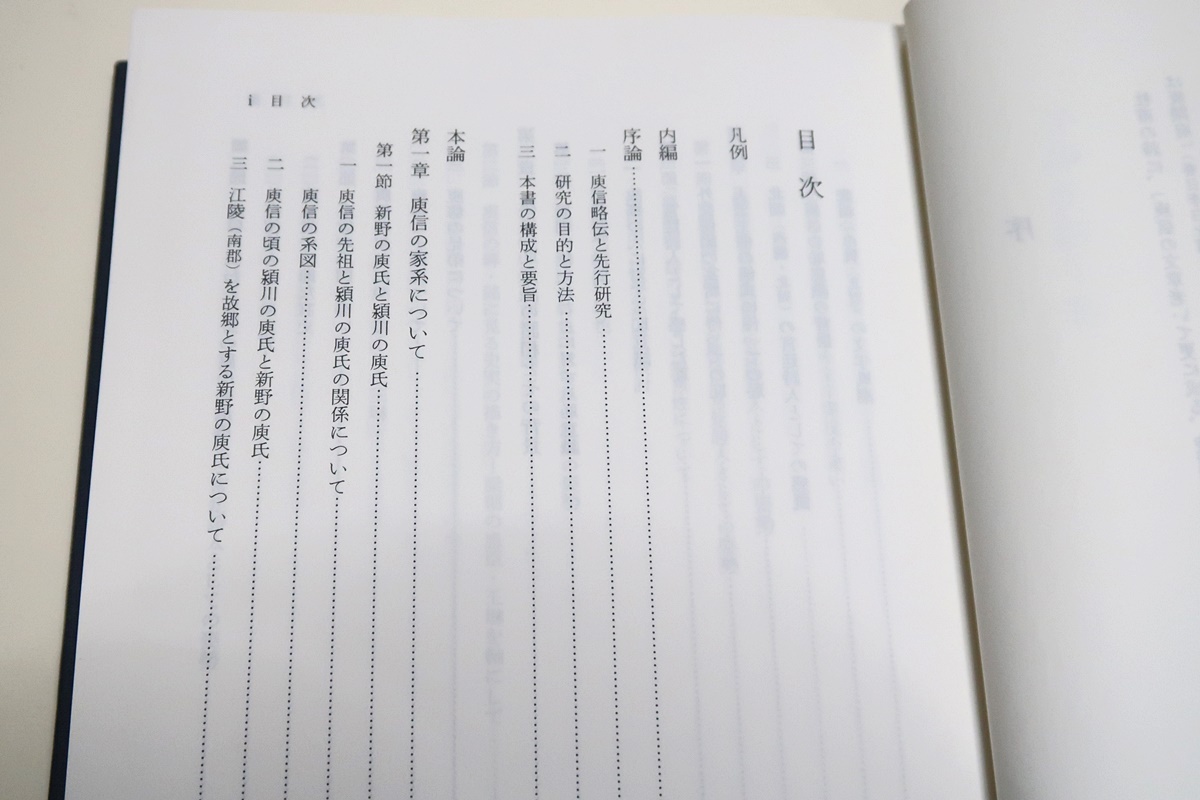 目次
凡例
内編
序論
一 庾信略伝と先行研究
二 研究の目的と方法
三 本書の構成と要旨
本論
第一章 庾信の家系について
第一節 新野の庾氏と潁川の庾氏
一 庾信の先祖と潁川の庾氏の関係について
庾信の系図
二 庾信の頃の潁川の庾氏と新野の庾氏
三 江陵（南郡）を故郷とする新野の庾氏について
i 目次
序